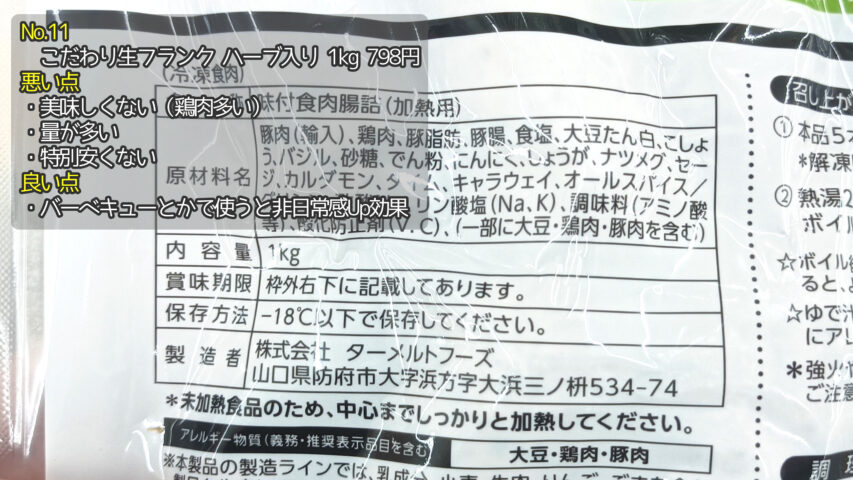 No.11
こだわり生フランク ハーブ入り 1kg 798円
悪い点
・美味しくない（鶏肉多い）
・量が多い
・特別安くない
良い点
・バーベキューとかで使うと非日常感Up効果
(冷凍食肉)
味付食肉腸詰(加熱用)
原材料名
豚肉(輸入)、鶏肉、豚脂肪、豚腸、食塩、大豆たん白、こしょ
う、バジル、砂糖、でん粉、にんにく、しょうが、ナツメグ、セー
ジ、カルダモン、タイム、キャラウェイ、オールスパイス／
リン酸塩(Na、K)、調味料(アミノ酸
等)、酸化防止剤(V.C)、(一部に大豆・鶏肉・豚肉を含む)
内容量 1kg
賞味期限 枠外右下に記載してあります。
保存方法 －18℃以下で保存してください。
製造者 株式会社 ターメルトフーズ
山口県防府市大字浜方字大浜三ノ枡534-74
＊未加熱食品のため、中心までしっかりと加熱してください。
アレルギー物質(義務・推奨表示品目を含む) 大豆・鶏肉・豚肉
※本製品の製造ラインでは、乳成分
召し上が
① 本品5本
＊解凍
② 熱湯2
ボイル
☆ボイル後
ると、
☆ゆで汁
にアレ
＊強火や
ご注意
調理